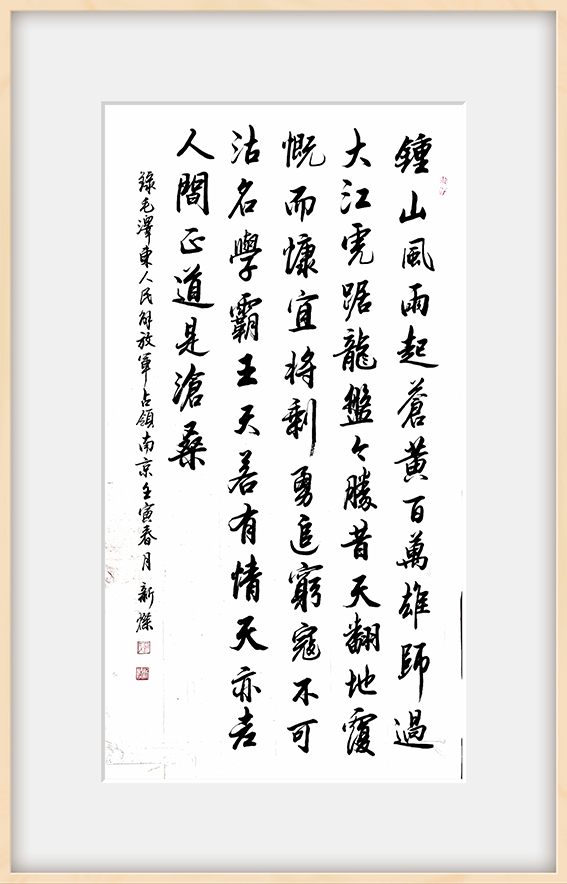 鍾山風雨起蒼黃百萬雄師過
大江虎踞龍盤今勝昔天翻地覆
慨而慷宜將剩勇追窮寇不可
沽名學霸王天若有情天亦老
人間正道是滄桑
錄毛澤東人民解放軍占領南京壬寅春月 新燦